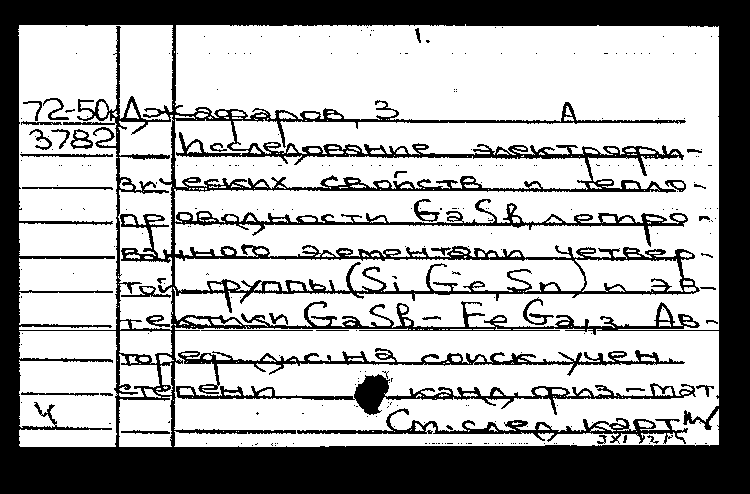 1.
72-50к Джафаров, З А
3782 Исследование электрофи-
зических свойств и тепло-
проводности GaSb, легиро-
ванного элементами четвер-
той группы (Si, Ge, Sn) и эв-
тектики GaSb - FeGa1,3. Ав-
тореф. дис. на соиск. учен.
степени канд. физ.-мат.
См. след. карт